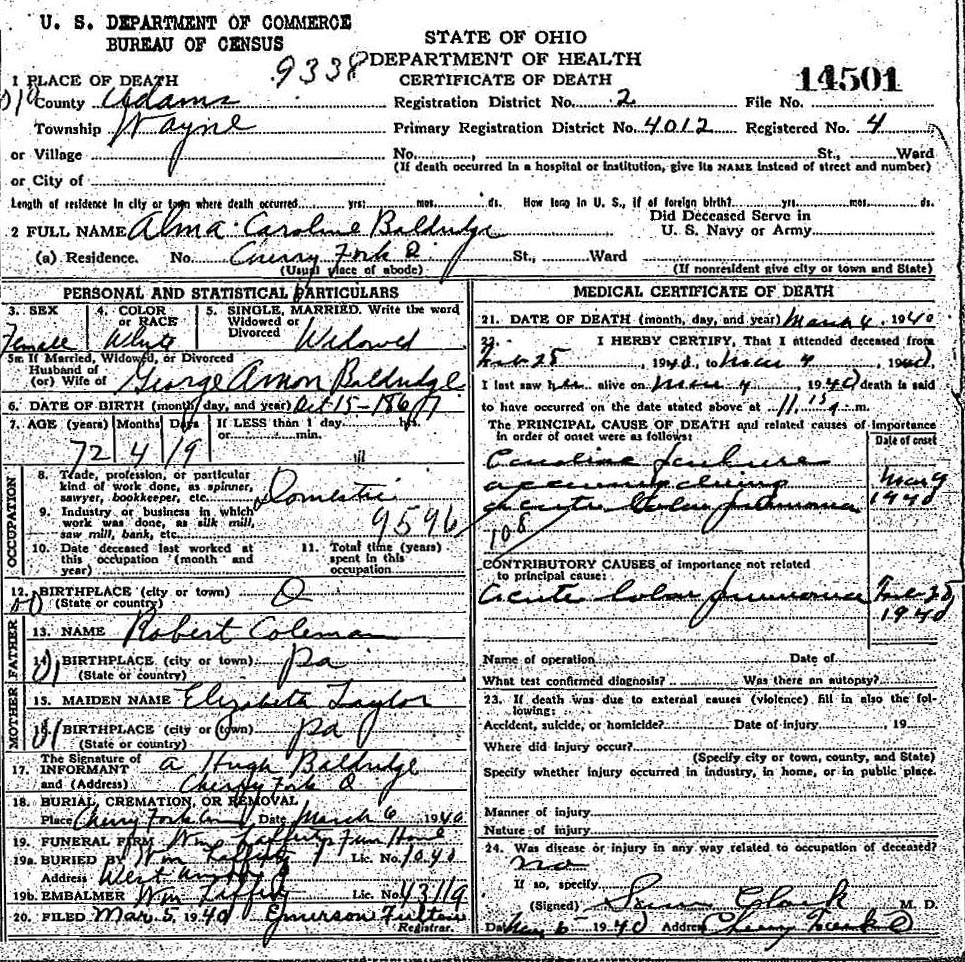 U. S. DEPARTMENT OF COMMERCE
BUREAU OF CENSUS
STATE OF OHIO
DEPARTMENT OF HEALTH
CERTIFICATE OF DEATH
9338
14501
1 PLACE OF DEATH
County Adams
Registration District No. 2 File No.
Township Wayne
Primary Registration District No. 4012 Registered No. 4
or Village
No. , St., Ward
(If death occurred in a hospital or institution, give its NAME instead of street and number)
or City of
Length of residence in city or town where death occurred yrs. mos. ds. How long in U. S., if of foreign birth? yrs. mos. ds.
2 FULL NAME Alma Caroline Baldridge
Did Deceased Serve in
U. S. Navy or Army
(a) Residence. No. Cherry Fork O. St., Ward
(Usual place of abode) (If nonresident give city or town and State)
PERSONAL AND STATISTICAL PARTICULARS
3. SEX 4. COLOR or RACE 5. SINGLE, MARRIED. Write the word
Widowed or
Divorced
Female White Widowed
5a. If Married, Widowed, or Divorced
Husband of
(or) Wife of George Amon Baldridge
6. DATE OF BIRTH (month, day, and year) Oct-15-1867
7. AGE (years) Months Days If LESS than 1 day hrs.
or min.
72 4 19
OCCUPATION
8. Trade, profession, or particular
kind of work done, as spinner,
sawyer, bookkeeper, etc. Domestic
9. Industry or business in which
work was done, as silk mill,
saw mill, bank, etc. 9596
10. Date deceased last worked at
this occupation (month and
year)
11. Total time (years)
spent in this
occupation
12. BIRTHPLACE (city or town) O
(State or country)
FATHER
13. NAME Robert Coleman
14. BIRTHPLACE (city or town) Pa
(State or country)
MOTHER
15. MAIDEN NAME Elizabeth Taylor
16. BIRTHPLACE (city or town) Pa
(State or country)
17. The Signature of
INFORMANT A Hugh Baldridge
and (Address) Cherry Fork O
18. BURIAL, CREMATION, OR REMOVAL
Place Cherry Fork Cem Date March 6 1940
19. FUNERAL FIRM Wm Lafferty Fun Home
19a. BURIED BY Wm Lafferty Lic. No. 1040
Address West
19b. EMBALMER Wm Lafferty Lic. No. 4311g
20. FILED Mar. 5, 1940 Emerson Fulton
Registrar.
MEDICAL CERTIFICATE OF DEATH
21. DATE OF DEATH (month, day, and year) March 4, 1940
22. I HEREBY CERTIFY, That I attended deceased from
Feb 25, 1940, to Mar 4, 1940
I last saw her alive on Mar 4, 1940 death is said
to have occurred on the date stated above at 11.15 m.
The PRINCIPAL CAUSE OF DEATH and related causes of importance
in order of onset were as follows:
Date of onset
failure
acute lobar pneumonia
Mar 4
1940
108
CONTRIBUTORY CAUSES of importance not related
to principal cause:
acute lobar pneumonia Feb 25
1940
Name of operation Date of
What test confirmed diagnosis? Was there an autopsy?
23. If death was due to external causes (violence) fill in also the fol-
lowing:
Accident, suicide, or homicide? Date of injury , 19
Where did injury occur?
(Specify city or town, county, and State)
Specify whether injury occurred in industry, in home, or in public place.
Manner of injury
Nature of injury
24. Was disease or injury in any way related to occupation of deceased?
no
If so, specify
(Signed) Clark M. D.
Date 1940 Address Cherry Fork O